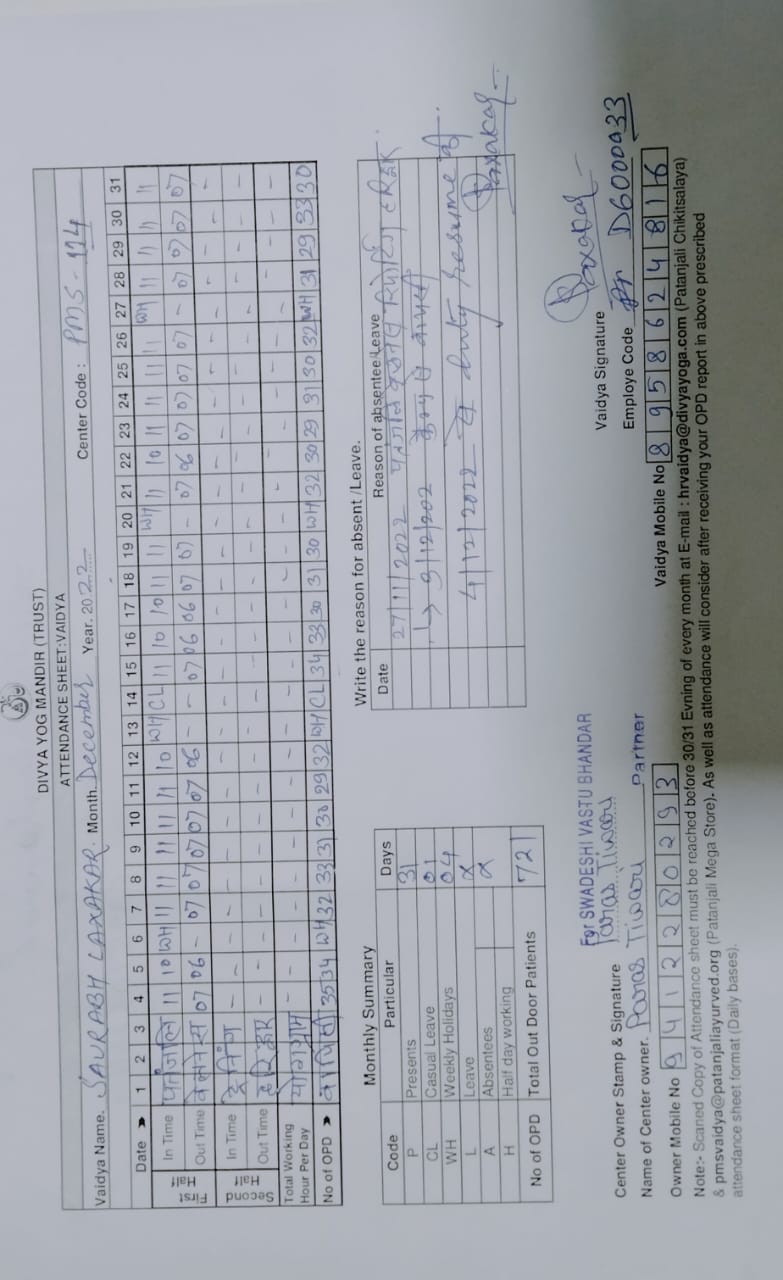 DIVYA YOG MANDIR (TRUST)
ATTENDANCE SHEET:VAIDYA
Vaidya Name. SAURABH LAXAKAR. Month. December Year. 2022 Center Code : PMS - 124
Date ➤ 1 2 3 4 5 6 7 8 9 10 11 12 13 14 15 16 17 18 19 20 21 22 23 24 25 26 27 28 29 30 31
First Half
In Time पतंजलि 11 10 WH 11 11 11 11 11 10 WH CL 11 10 10 11 11 WH 11 10 11 11 11 11 WH 11 11 11 11
Out Time वेलनेस 07 06 - 07 07 07 07 07 06 - - 07 06 06 07 07 - 07 06 07 07 07 07 - 07 07 07 07
Second Half
In Time ट्रेनिंग - - - - - - - - - - - - - - - - - - - - - - - - - - - -
Out Time हरिद्वार - - - - - - - - - - - - - - - - - - - - - - - - - - - -
Total Working Hour Per Day योगग्राम - - - - - - - - - - - - - - - - - - - - - - - - - - - -
No of OPD ➤ वापिसी 35 34 WH 32 33 31 30 29 32 WH CL 34 33 30 31 30 WH 32 30 29 31 30 32 WH 31 29 33 30
Monthly Summary
Code Particular Days
P Presents 31
CL Casual Leave 01
WH Weekly Holidays 04
L Leave
A Absentees
H Half day working
No of OPD Total Out Door Patients 721
Write the reason for absent /Leave.
Date Reason of absentee/Leave
27/11/2022 पतंजलि वेलनेस रिपोर्टिंग हरिद्वार
↳ 3/12/202 से वापसी
4/12/2022 से duty resume की
Laxakar
For SWADESHI VASTU BHANDAR
Center Owner Stamp & Signature Paras Tiwari
Name of Center owner. Paras Tiwari Partner
Owner Mobile No 9412280293
Vaidya Signature Laxakar
Employe Code D6000933
Vaidya Mobile No 8958624816
Note:- Scaned Copy of Attendance sheet must be reached before 30/31 Evning of every month at E-mail : hrvaidya@divyayoga.com (Patanjali Chikitsalaya)
& pmsvaidya@patanjaliayurved.org (Patanjali Mega Store). As well as attendance will consider after receiving your OPD report in above prescribed
attendance sheet format (Daily bases).